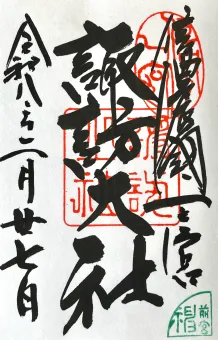 信濃國一之宮
諏訪大社
令和八年一月廿七日
前宮